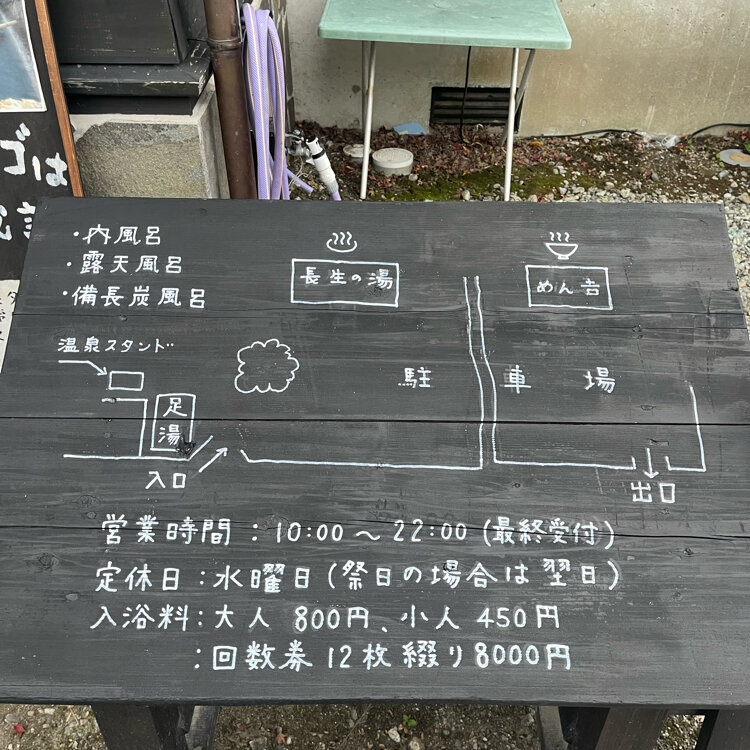 ゴは
・内風呂
・露天風呂
・備長炭風呂
長生の湯
めん吉
温泉スタンド
駐車場
足湯
入口
出口
営業時間：10:00～22:00(最終受付)
定休日：水曜日(祭日の場合は翌日)
入浴料：大人 800円、小人 450円
：回数券 12枚綴り8000円